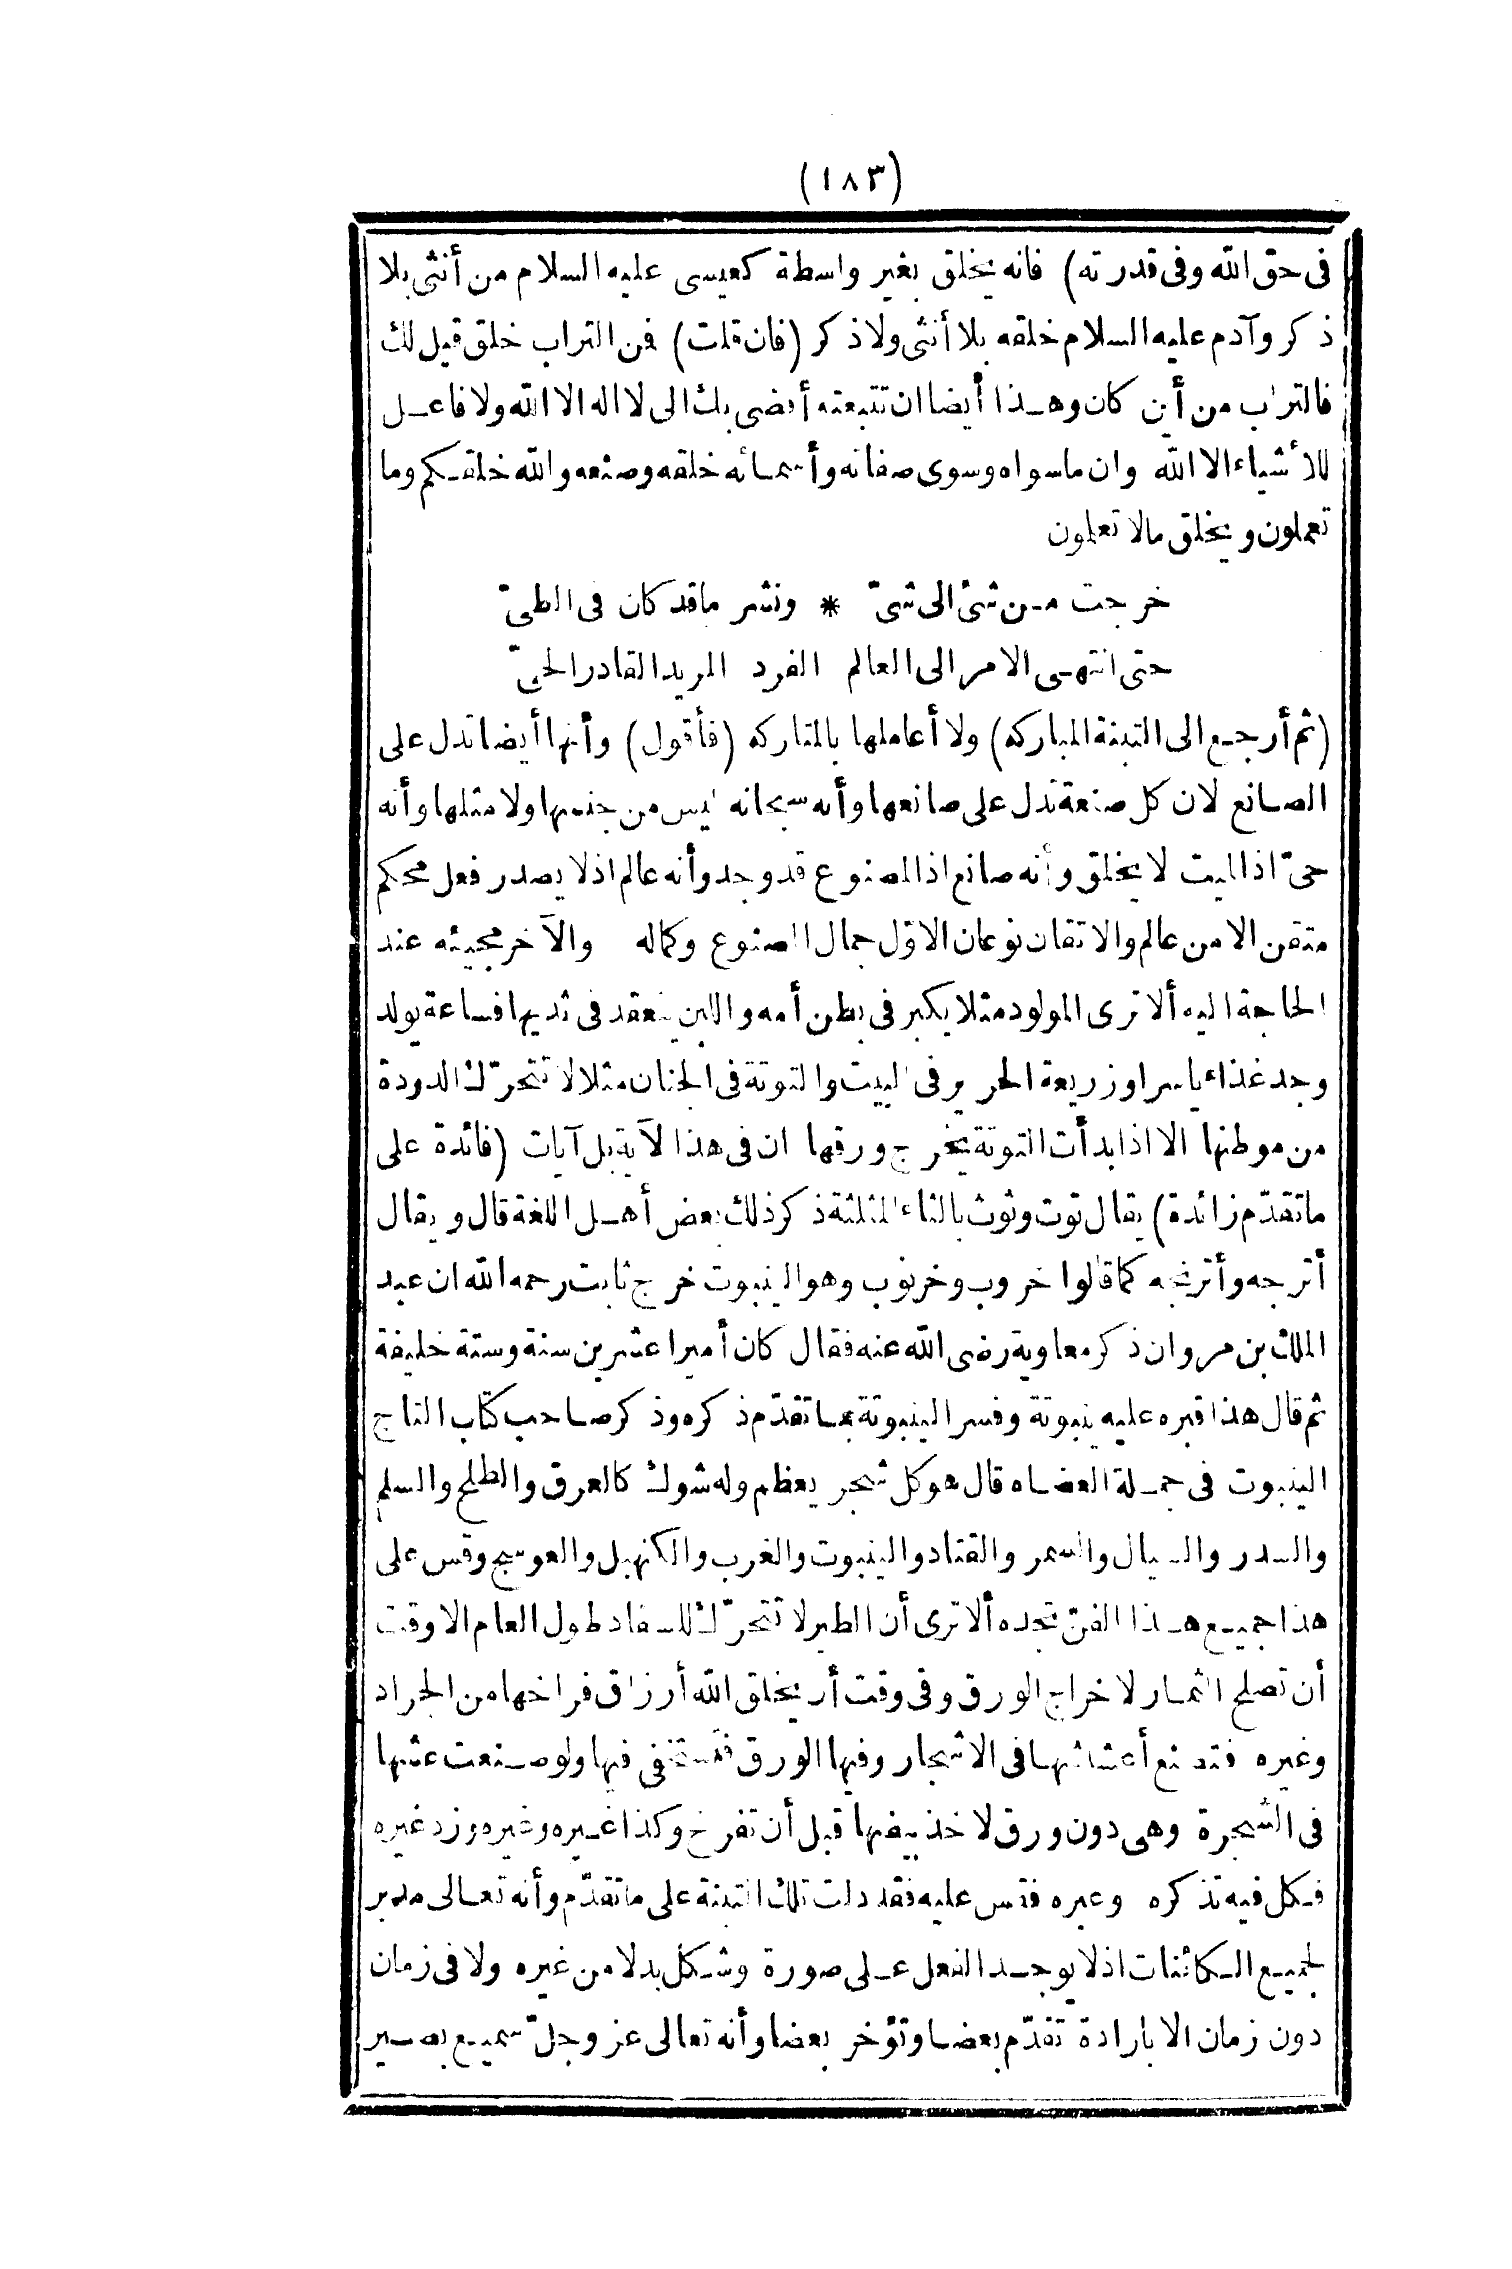 (١٨٣)
فى حق الله وفى قدرته) فانه يخلق بغير واسطة كعيسى عليه السلام من أنثى بلا
ذكر وآدم عليه السلام خلقه بلا أنثى ولا ذكر (فان قلت) فمن التراب خلق قيل لك
فالتراب من أين كان وهذا أيضا ان تتبعته أفضى بك الى لا اله الا الله ولا فاعل
للأشياء الا الله وان ماسواه وسوى صفاته وأسمائه خلقه وصنعه والله خلقكم وما
تعملون ويخلق مالا تعلمون
خرجت من شئ الى شىّ * ونشر ماقد كان فى الطىّ
حتى انتهى الامر الى العالم الفرد المريد القادر الحىّ
(ثم أرجع الى التبنة المباركه) ولا أعاملها بالمتاركه (فأقول) وأنها أيضا تدل على
الصانع لان كل صنعة تدل على صانعها وأنه سبحانه ليس من جنسها ولا مثلها وأنه
حىّ اذ الميت لا يخلق وأنه صانع اذ المصنوع قد وجد وأنه عالم اذ لا يصدر فعل محكم
متقن الا من عالم والاتقان نوعان الاوّل جمال المصنوع وكماله والآخر مجيئه عند
الحاجة اليه ألا ترى المولود مثلا يكبر فى بطن أمه واللبن ينعقد فى ثديها فساعة يولد
وجد غذاء ياسرا وزريعة الحرير فى البيت والتوتة فى الجنان مثلا لا تتحرّك الدودة
من موطنها الا اذا بدأت التوتة يخرج ورقها ان فى هذا لآية بل آيات (فائدة على
ماتقدّم زائدة) يقال توت وتوث بالثاء المثلثة ذكر ذلك بعض أهل اللغة قال ويقال
أترجه وأترنجه كما قالوا خروب وخرنوب وهو الينبوت خرج ثابت رحمه الله ان عبد
الملك بن مروان ذكر معاوية رضى الله عنه فقال كان أميرا عشرين سنة وستة خليفة
ثم قال هذا قبره عليه ينبوتة وفسر الينبوتة بما تقدّم ذكره وذكر صاحب كتاب التاج
الينبوت فى جملة العضاه قال هو كل شجر يعظم وله شوك كالعرق والطلح والسلم
والسدر والسيال والسمر والقتاد والينبوت والغرب والكنهبل والعوسج وقس على
هذا جميع هذا الفنّ تجده ألا ترى أن الطير لا تتحرّك للسفاد طول العام الا وقت
أن تصلح الثمار لاخراج الورق وفى وقت أن يخلق الله أرزاق فراخها من الجراد
وغيره فتصنع أعشاشها فى الاشجار وفيها الورق فتستخفى فيها ولو صنعت عشها
فى الشجرة وهى دون ورق لاخذ بيضها قبل أن تفرخ وكذا غيره وغيره وزد غيره
فكل فيه تذكره وعبره فقس عليه فقد دلت تلك التبنة على ماتقدّم وأنه تعالى مدبر
لجميع الكائنات اذ لا يوجد الفعل على صورة وشكل بدلا من غيره ولا فى زمان
دون زمان الا بارادة تقدّم بعضا وتؤخر بعضا وأنه تعالى عز وجلّ سميع بصير